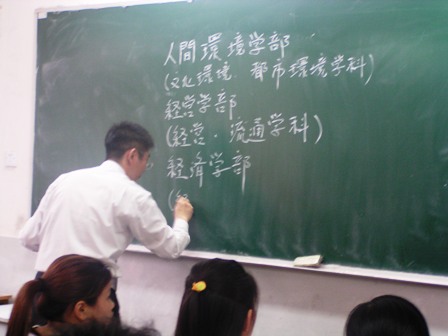 人間環境学部
(文化環境、都市環境学科)
経営学部
(経営・流通学科)
経済学部
(